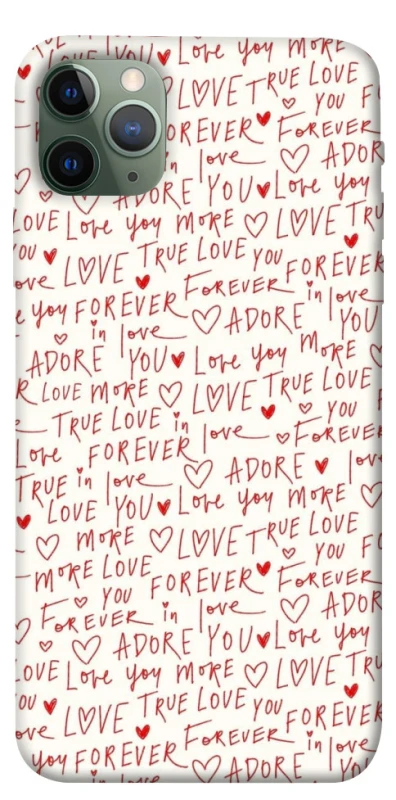 LOVE YOU♥ Love you MORE
♡ LOVE TRUE LOVE
♡ YOU
FOREVER♥ FOREVER
in love ♡ ADOR
♡ ADORE YOU♥ Love you
LOVE Love you MORE ♡ LOVE TRU
OU ♥ TRUE LOVE YOU FOREVER
ove LOVE ♥ FOREVER in love
e you FOREVER ♡ ADORE YOU
♡ in love
ADORE YOU♥ Love you MORE ♡
R LOVE MORE ♡ LOVE TRUE LOVE
TRUE LOVE in love ♥ ♡ YOU
Love FOREVER ♡ FOREVER
TRUE in love ♡ ADORE ♥ lov
♥ LOVE YOU♥ Love you MORE ♡
♡ MORE ♡ LOVE TRUE LOVE
MORE LOVE ♡ YOU FO
YOU FOREVER♥ FOREVER
♡ FOREVER in love ♡ ADOR
♡ ADORE YOU♥ Love you
LOVE Love you MORE ♡ LOVE TRU
OU ♥ TRUE LOVE YOU FOREVER
ove LOVE ♥ FOREVER in love
you FOREVER ♡ ADORE YOU
in love